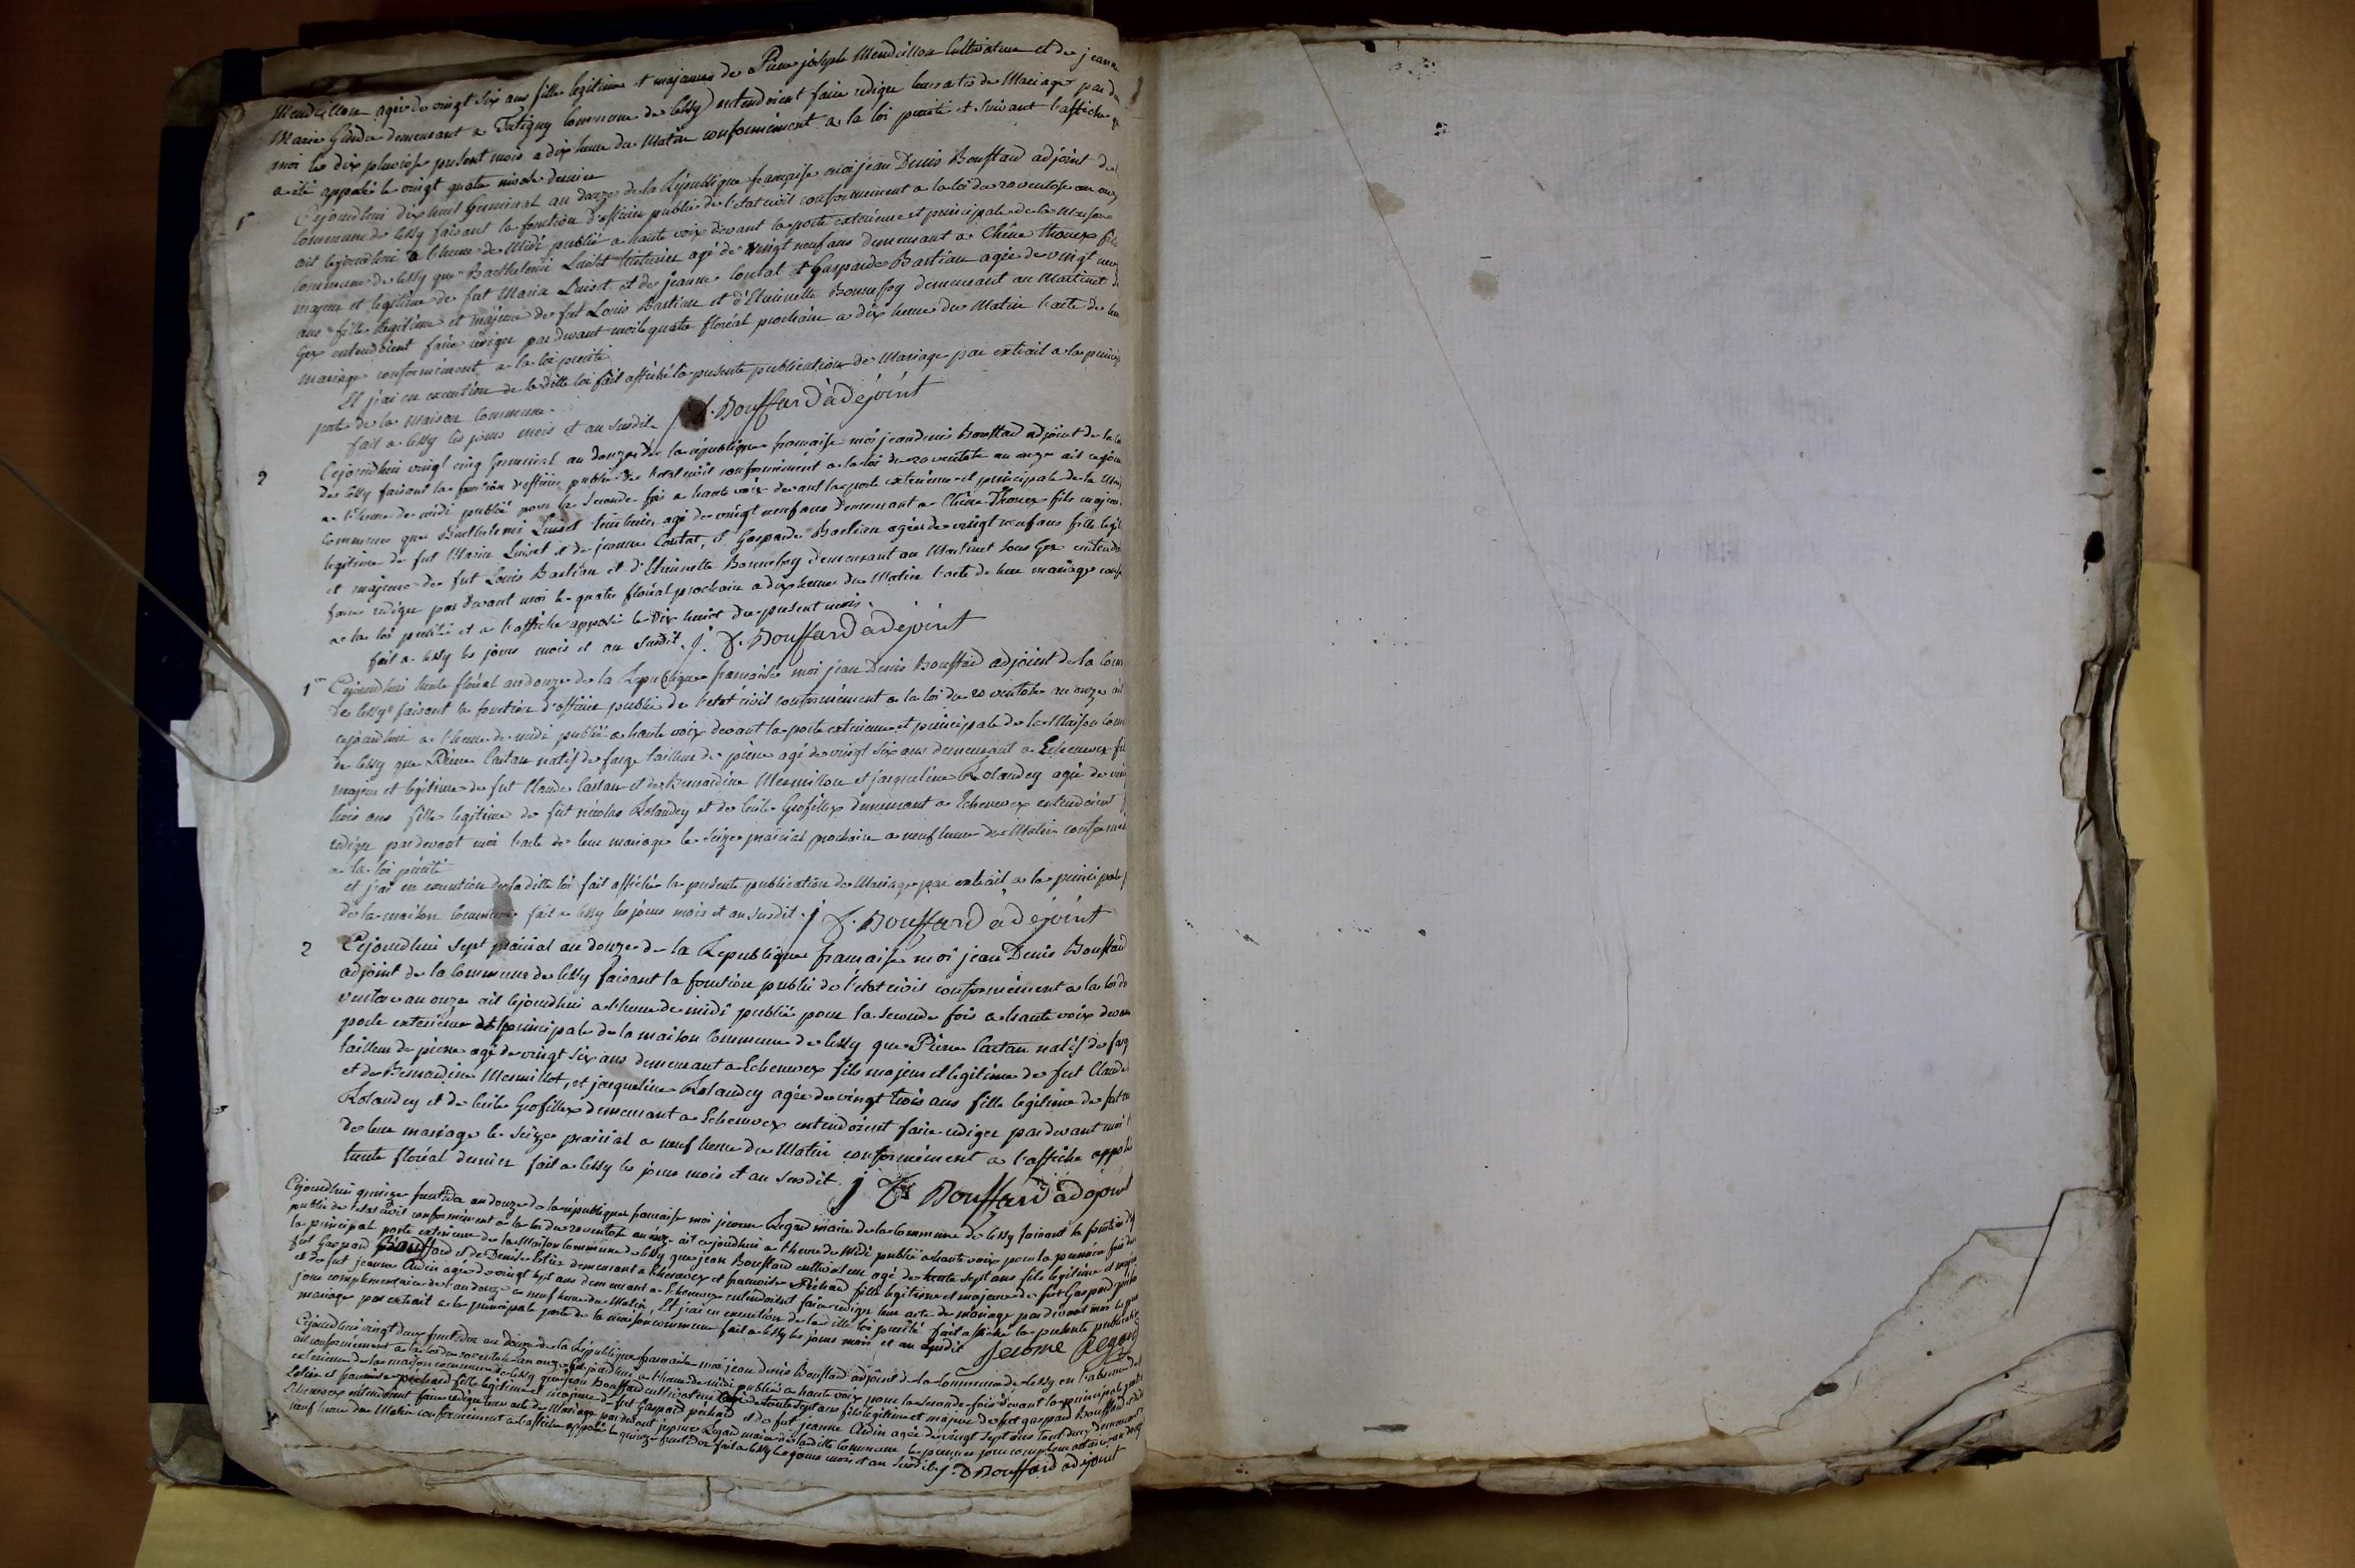 Mendillon agée de vingt six ans fille legitime et majeure de Pierre joseph Mendillon Cultivateur et de jeanne
Marie Girod demeurant a Tutigny Commune de Cessy entendoient faire rediger leur acte de Mariage par d
moi le dix pluviose present mois a dix heure du Matin conformément a la loi précité et suivant l'affiche q
a été apposée le vingt quatre nivose dernier
1er Cejourdhui dix huit Germinal an douze de la République française moi jean Denis Bouffard adjoint de l
Commune de Cessy faisant la fonction d'officier public de l'etat civil conformément a la loi du 20 ventose an onz
ait cejourdhui a l'heure de Midi publié a haute voix devant la porte exterieure et principale de la Maison
Commune de Cessy que Barthelemi Luiset teinturier agé de vingt neuf ans demeurant a Chêne thonex fils
majeur et legitime de fut Marin Luiset et de jeanne Contat et Gasparde Bastian agée de vingt neuf
ans fille legitime et majeure de fut Louis Bastian et d'Etiennette Bonnefoy demeurant au Martinet d
Gex entendoient faire rediger pardevant moi le quatre floréal prochain a dix heure du Matin l'acte de leur
mariage conformément a la loi precité
Et j'ai en execution de laditte loi fait affiché la presente publication de Mariage par extrait a la princip
porte de la Maison Commune.
fait a Cessy les jours mois et an susdit j D. Bouffard adejoint
2 Cejourdhui vingt cinq Germinal an douze de la république francaise moi jean denis Bouffard adjoint de la Co
de Cessy faisant la fonction d'officier public de l'etat civil conformément a la loi du 20 ventose an onze ait cejour
a l'heure de midi publié pour la seconde fois a haute voix devant la porte exterieure et principale de la Mais
commune que Barthelemi Luiset teinturier agé de vingt neuf ans demeurant a Chêne Thonex fils majeur
legitime de fut Marin Luiset et de jeanne Contat, et Gasparde Bastian agée de vingt neuf ans fille legit
et majeure de fut Louis Bastian et d'Etiennette Bonnefoy demeurant au Martinet sous Gex entendo
faire rediger pardevant moi le quatre floréal prochain a dix heure du Matin l'acte de leur mariage conf
a la loi precité et a l'affiche apposée le dix huit du present mois.
fait a Cessy les jours mois et an susdit. j. D. Bouffard adejoint
1er Cejourdhui trente floréal an douze de la Republique francaise moi jean Denis Bouffard adjoint de la Com
de Cessy faisant la fonction d'officier public de l'etat civil conformément a la loi du 20 ventose an onze ait
cejourdhui a l'heure de midi publié a haute voix devant la porte exterieure et principale de la Maison Com
de Cessy que Pierre Cartan natif de farge tailleur de pierre agé de vingt six ans demeurant a Echenevex fils
majeur et légitime de fut Claude Cartan et de Bernardine Mermillon et jaqueline Rolandey agée de vin
trois ans fille legitime de fut nicolas Rolandey et de Cecile Grofillex demeurant a Echenevex entendoient
rediger pardevant moi l'acte de leur mariage le seize prairial prochain a neuf heure du Matin conformé
a la loi précité
et j'ai en execution de laditte loi fait affiché la presente publication de Mariage par extrait a la principale p
de la maison Commune fait a Cessy les jours mois et an susdit. j D. Bouffard adejoint
2 Cejourdhui sept prairial an douze de la Republique francaise moi jean Denis Bouffard
adjoint de la Commune de Cessy faisant la fonction public de l'etat civil conformément a la loi d
ventose an onze ait cejourdhui a l'heure de midi publié pour la seconde fois a haute voix devan
porte exterieure et principale de la maison Commune de Cessy que Pierre Cartan natif de farg
tailleur de pierre agé de vingt six ans demeurant a Echenevex fils majeur et legitime de fut Claude
et de Bernardine Mermillot, et jaqueline Rolandey agée de vingt trois ans fille legitime de fut n
Rolandey et de Cecile Grofillex demeurant a Echenevex entendoient faire rediger pardevant moi l
de leur mariage le seize prairial a neuf heure du Matin conformément a l'affiche apposé
trente floréal dernier fait a Cessy les jours mois et an susdit. j D Bouffard adejoint
Cejourdhui quinze fructidor an douze de la république francaise moi jerome Regard maire de la Commune de Cessy faisant la fonction d'of
public de l'etat civil conformément a la loi du 20 ventose an onze ait cejourdhui a l'heure de Midi publié a haute voix pour la premiere fois dev
la principal porte exterieure de la Maison Commune de Cessy que jean Bouffard cultivateur agé de trente sept ans fils legitime et majeur
fut Gaspard Bouffard et de Denise demeurant a Echenevex et francoise Péchard fille legitime et majeure de fut Gaspard péchar
et de fut jeanne Audin agée de vingt sept ans demeurant a Echenevex entendoient faire rediger leur acte de mariage pardevant moi le pre
jour complementaire de l'an douze a neuf heure du Matin, Et j'ai en execution de laditte loi precité fait affiché la presente publicatio
mariage par extrait a la principale porte de la maison commune fait a Cessy les jours mois et an susdit Jerome Regard
Cejourdhui vingt deux fructidor an douze de la République francaise moi jean denis Bouffard adjoint de la Commune de Cessy en l'absence de
ait conformément a la loi du 20 ventose an onze cejourdhui a l'heure de midi publié a haute voix pour la seconde fois devant la principale porte
exterieure de la maison commune de Cessy que jean Bouffard cultivateur agé de trente sept ans fils legitime et majeur de fut gaspard Bouffard et de
et francoise péchard fille legitime et majeure de fut Gaspard péchard et de fut jeanne Audin agée de vingt sept ans tout deux demeurant
Echenevex entendoient faire rediger leur acte de Mariage pardevant jerome Regard maire de laditte Commune le premier jour complementaire an douze
neuf heure du Matin conformément a l'affiche apposée le quinze fructidor fait a Cessy les jours mois et an susdit j. D Bouffard adejoint